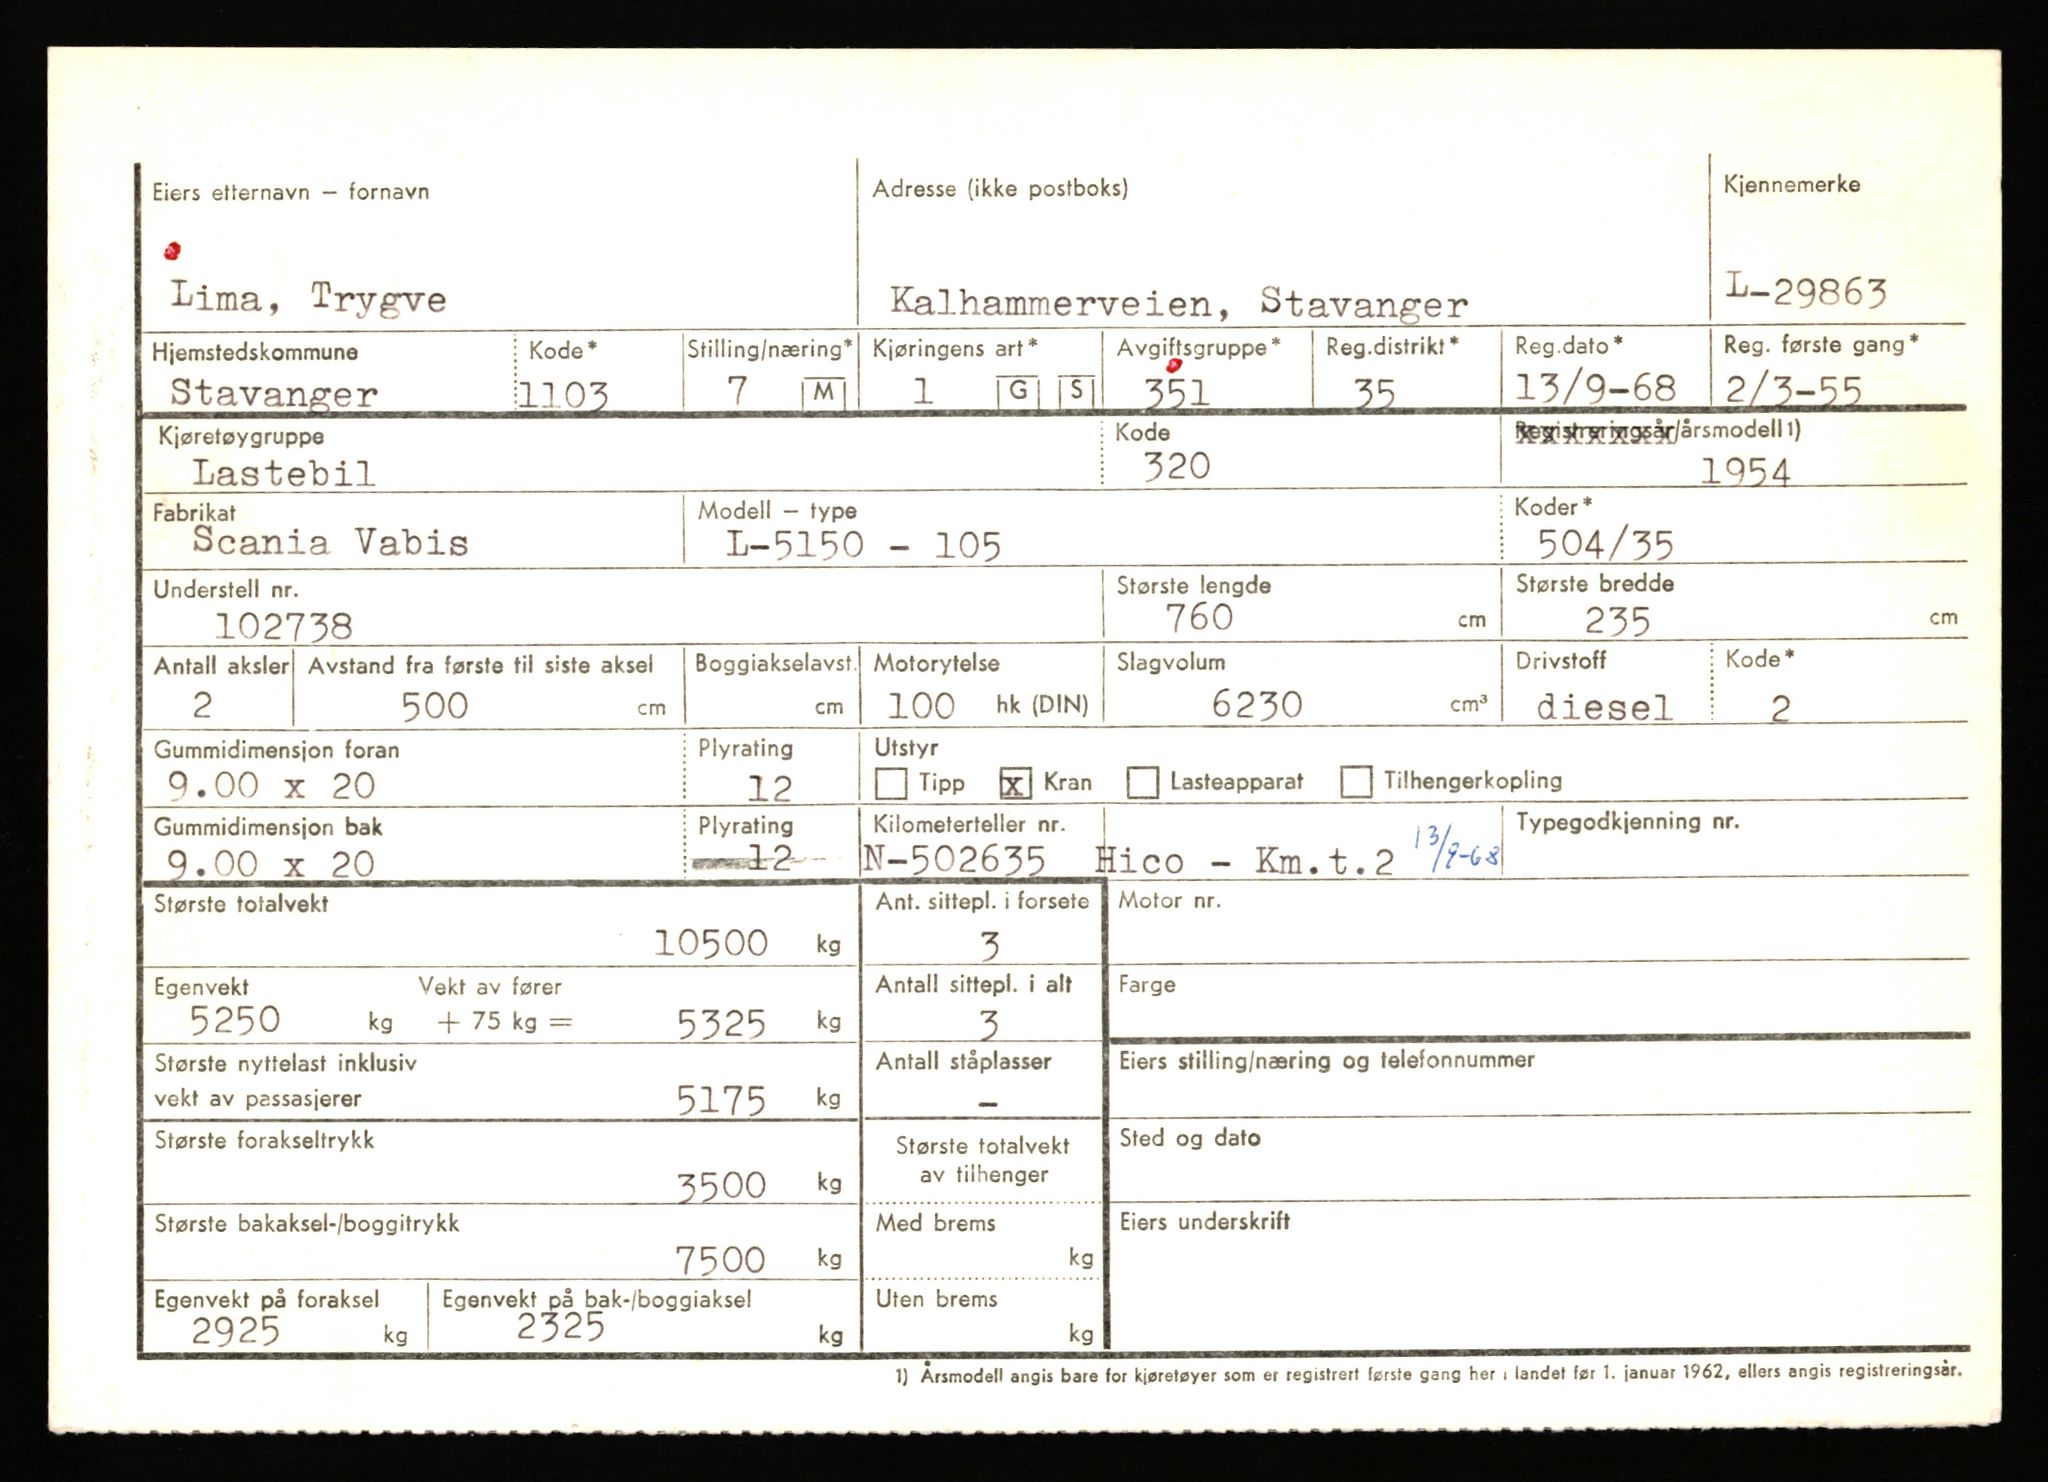 Eiers etternavn – fornavn Adresse (ikke postboks) Kjennemerke
Lima, Trygve Kalhammerveien, Stavanger L-29863
Hjemstedskommune Kode* Stilling/næring* Kjøringens art* Avgiftsgruppe* Reg.distrikt* Reg.dato* Reg. første gang*
Stavanger 1103 7 M 1 G S 351 35 13/9-68 2/3-55
Kjøretøygruppe Kode Registreringsår/årsmodell 1)
Lastebil 320 1954
Fabrikat Modell – type Koder*
Scania Vabis L-5150 - 105 504/35
Understell nr. Største lengde Største bredde
102738 760 cm 235 cm
Antall aksler Avstand fra første til siste aksel Boggiakselavst. Motorytelse Slagvolum Drivstoff Kode*
2 500 cm cm 100 hk (DIN) 6230 cm³ diesel 2
Gummidimensjon foran Plyrating Utstyr
9.00 x 20 12 Tipp x Kran Lasteapparat Tilhengerkopling
Gummidimensjon bak Plyrating Kilometerteller nr. Typegodkjenning nr.
9.00 x 20 12 N-502635 Hico - Km.t.2 13/9-68
Største totalvekt Ant. sittepl. i forsete Motor nr.
10500 kg 3
Egenvekt Vekt av fører Antall sittepl. i alt Farge
5250 kg + 75 kg = 5325 kg 3
Største nyttelast inklusiv Antall ståplasser Eiers stilling/næring og telefonnummer
vekt av passasjerer 5175 kg -
Største forakseltrykk Største totalvekt Sted og dato
av tilhenger
3500 kg
Største bakaksel-/boggitrykk Med brems Eiers underskrift
7500 kg kg
Egenvekt på foraksel Egenvekt på bak-/boggiaksel Uten brems
2925 kg 2325 kg kg
1) Årsmodell angis bare for kjøretøyer som er registrert første gang her i landet før 1. januar 1962, ellers angis registreringsår.